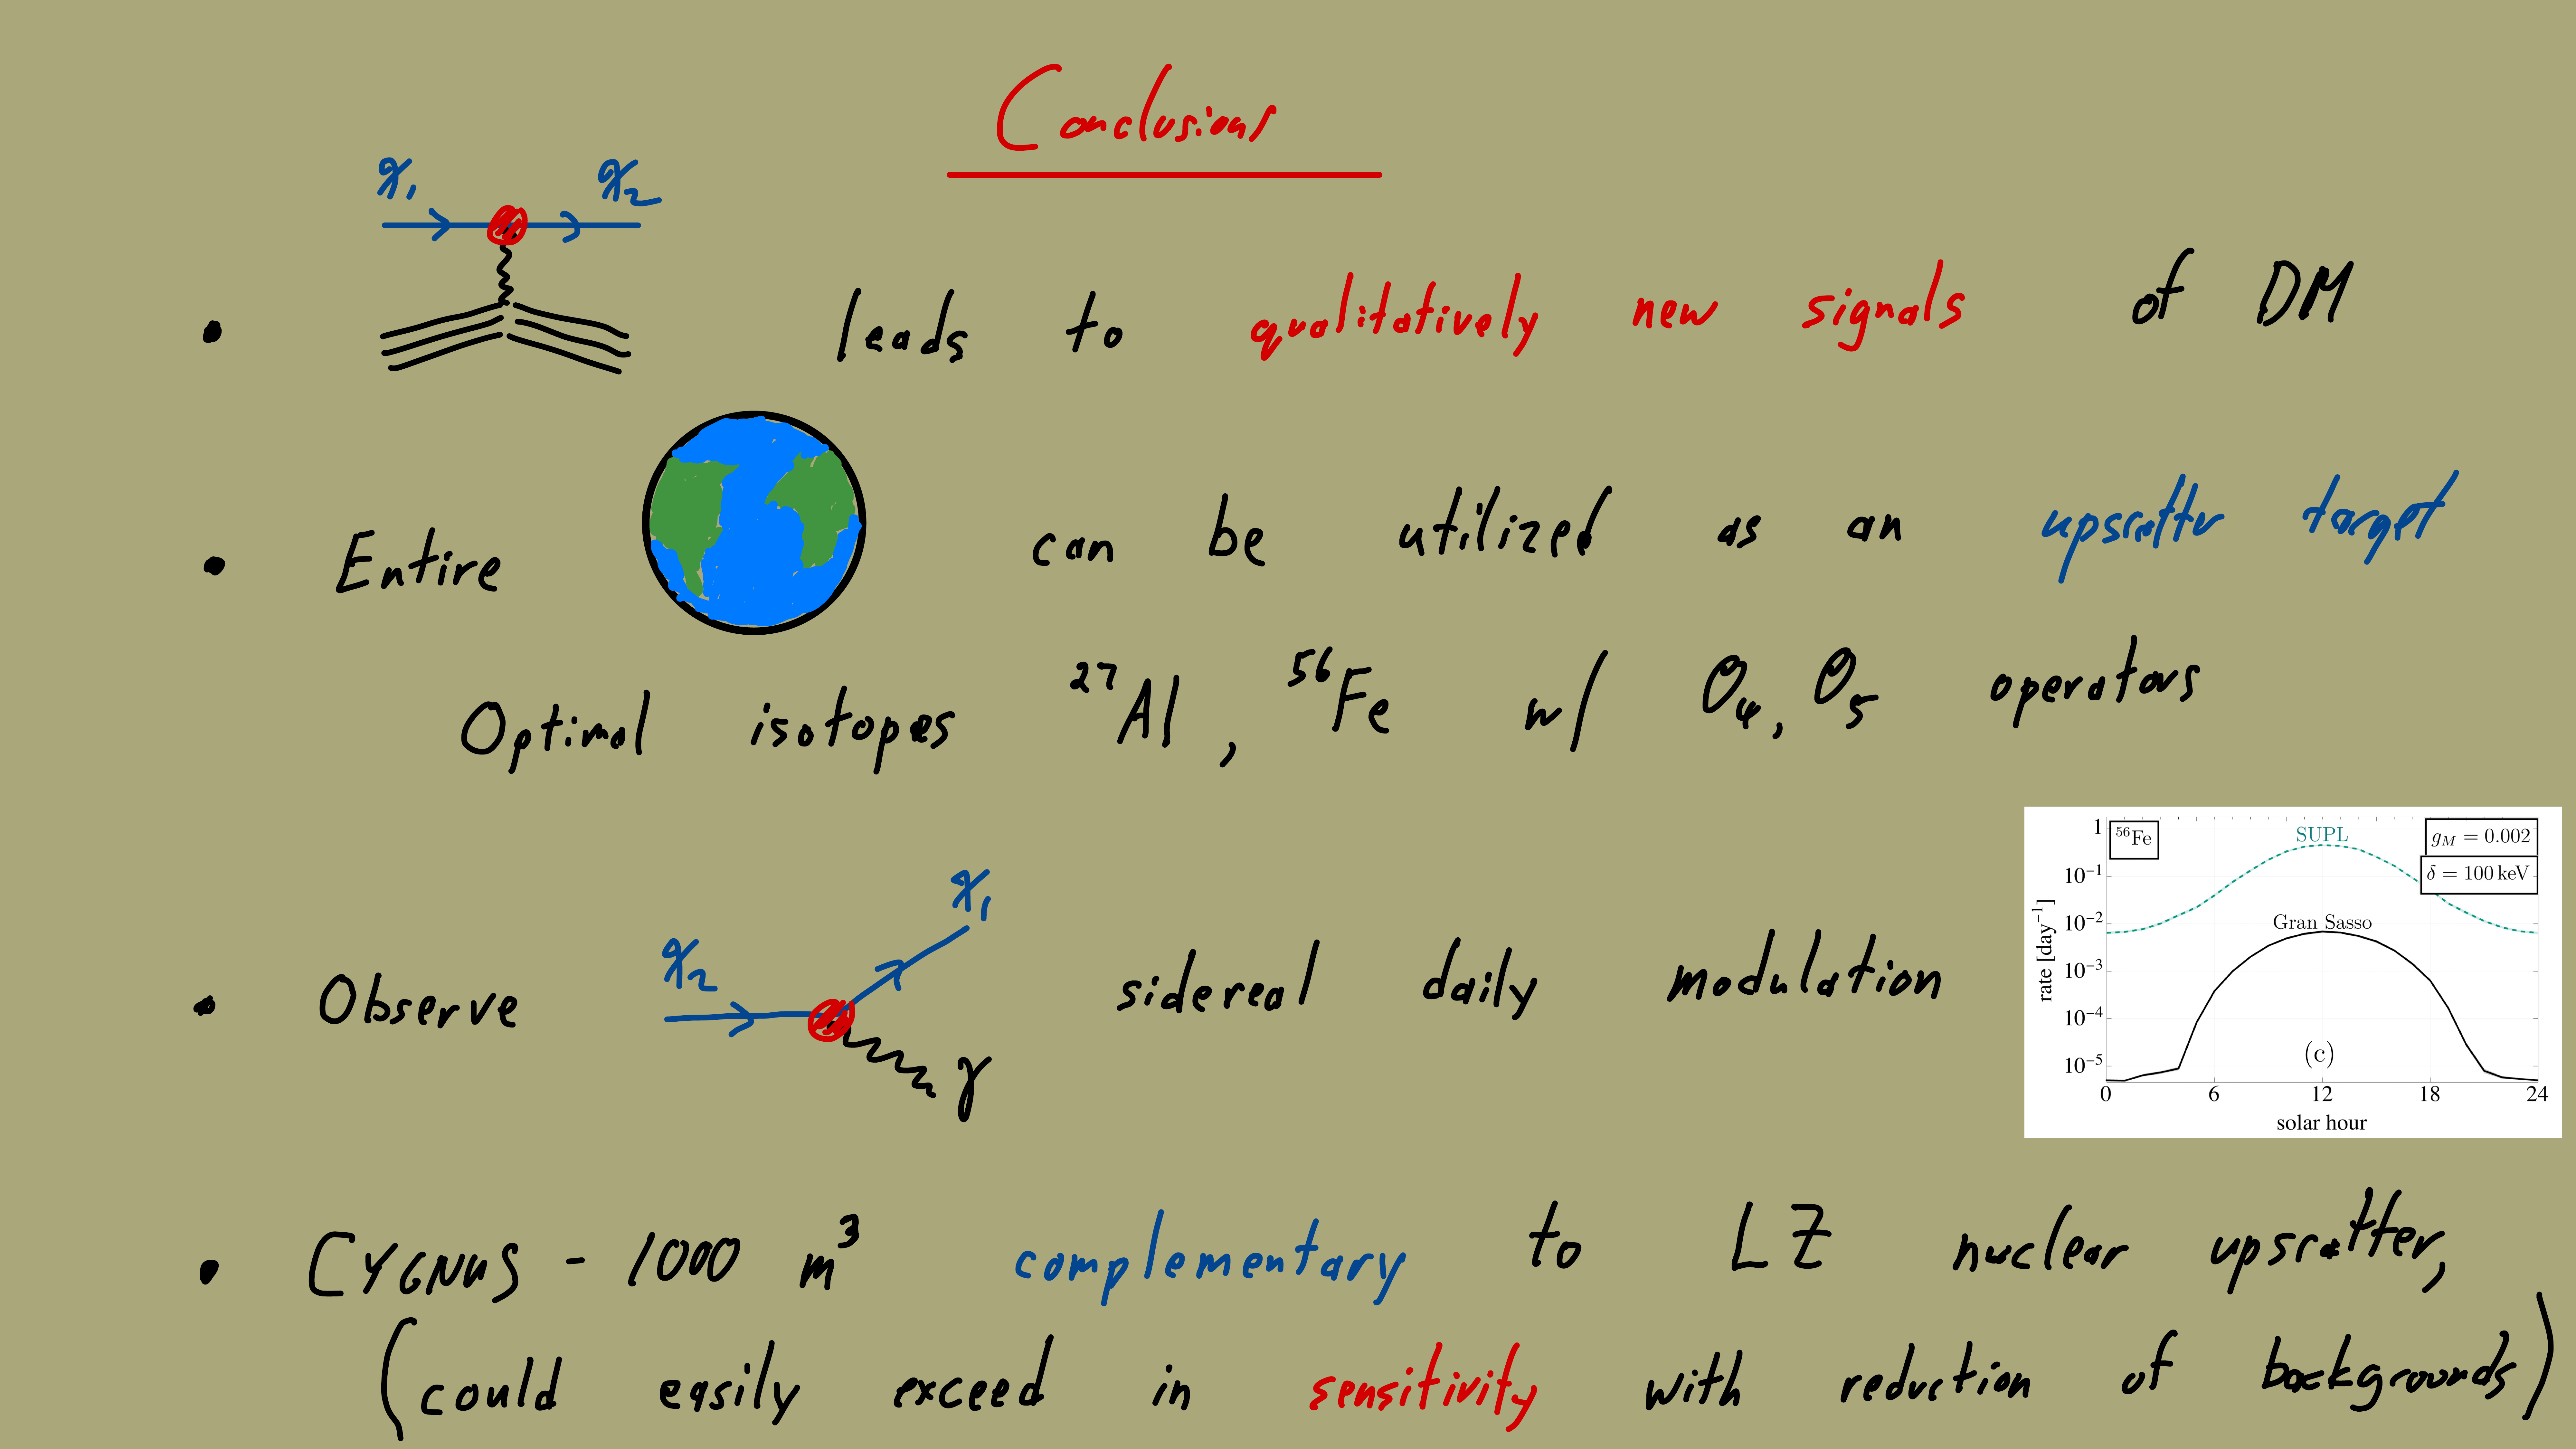 Conclusions
χ₁ χ₂
• leads to qualitatively new signals of DM
• Entire can be utilized as an upscatter target
Optimal isotopes ²⁷Al, ⁵⁶Fe w/ O₄, O₅ operators
• Observe χ₂ χ₁ γ sidereal daily modulation
⁵⁶Fe
SUPL
g_M = 0.002
δ = 100 keV
Gran Sasso
(c)
rate [day⁻¹]
1
10⁻¹
10⁻²
10⁻³
10⁻⁴
10⁻⁵
0 6 12 18 24
solar hour
• CYGNUS - 1000 m³ complementary to LZ nuclear upscatter,
(could easily exceed in sensitivity with reduction of backgrounds)